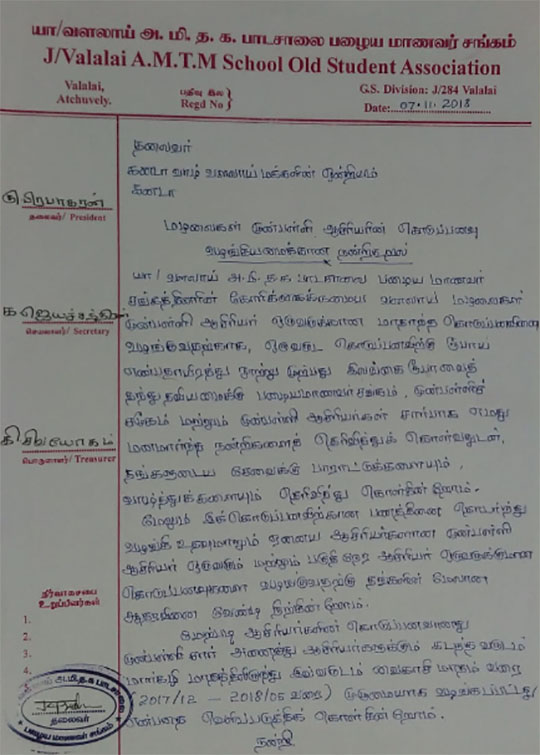 யா/வளலாய் அ. மி. த. க. பாடசாலை பழைய மாணவர் சங்கம்
J/Valalai A.M.T.M School Old Student Association
Valalai,
Atchuvely.
பதிவு இல
Regd No
G.S. Division: J/284 Valalai
Date: 07.11.2018
தலைவர்
கனடா வாழ் வளலாய் மக்களின் ஒன்றியம்
கனடா
மழலைகள் முன்பள்ளி ஆசிரியரின் கொடுப்பனவு
வழங்கியமைக்கான நன்றி நவில்
யா/வளலாய் அ.மி.த.க பாடசாலை பழைய மாணவர்
சங்கத்தினரின் கோரிக்கைக்கமைய வளலாய் மழலைகள்
முன்பள்ளி ஆசிரியர் ஒருவருக்கான மாதாந்த கொடுப்பனவினை
வழங்குவதற்காக, ஒருவருட கொடுப்பனவிற்கு ரூபாய்
எண்பதாயிரத்து நூற்று முற்பது இலங்கை ரூபாவைத்
தந்துதவியமைக்கு பழையமாணவர் சங்கம், முன்பள்ளிச்
சமூகம் மற்றும் முன்பள்ளி ஆசிரியர்கள் சார்பாக எமது
மனமார்ந்த நன்றிகளைத் தெரிவித்துக் கொள்வதுடன்,
தங்களுடைய சேவைக்கு பாராட்டுக்களையும்,
வாழ்த்துக்களையும் தெரிவித்து கொள்கின்றோம்.
மேலும் இக்கொடுப்பனவிற்கான பணத்தினை தொடர்ந்து
வழங்கி உதவுமாறும் ஏனைய ஆசிரியர்களான முன்பள்ளி
ஆசிரியர் ஒருவரும் மற்றும் பகுதி நேர ஆசிரியர் ஒருவருக்குமான
கொடுப்பனவுகளை வழங்குவதற்கு தங்களின் மேலான
ஆதரவினை வேண்டி நிற்கின்றோம்.
மேற்படி ஆசிரியர்களின் கொடுப்பனவானது
முன்பள்ளி சார் அனைத்து ஆசிரியர்களுக்கும் கடந்த வருடம்
மார்கழி மாதத்திலிருந்து இவ்வருடம் வைகாசி மாதம் வரை
(2017/12 – 2018/05 வரை) முழுமையாக வழங்கப்பட்டது
என்பதை வெளிப்படுத்திக் கொள்கின்றோம்.
நன்றி
கு.பிரபாகரன்
தலைவர்/ President
க.ஜெயச்சந்திரன்
செயலாளர்/ Secretary
கி.சிவயோகம்
பொருளாளர்/ Treasurer
நிர்வாகசபை
உறுப்பினர்கள்
1.
2.
3.
4.
தலைவர்
பழைய மாணவர் சங்கம்